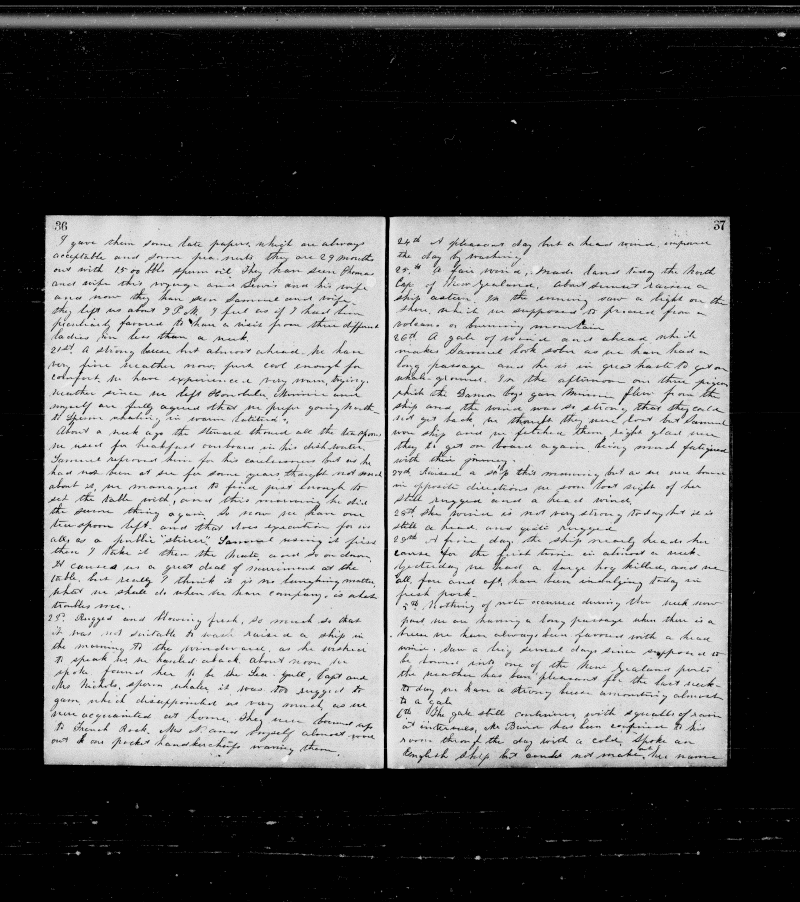 36
I gave them some late papers, which are always
acceptable and some pea-nuts they are 29 months
out with 1500 bbls sperm oil. They have seen Thomas
and wife this voyage and Lewis and his wife
and now they have seen Samuel and wife.
they left us about 9 P.M. I feel as if I had been
peculiarly favored to have a visit from three different
ladies in less than a week.
21st. A strong breeze but almost ahead. We have
very fine weather now, just cool enough for
comfort, we have experienced very warm, trying
weather since we left Honolulu, Minnie and
myself are fully agreed that we prefer going North
to Sperm whaling in warm latitudes.
About a week ago the steward threw all the tea spoons
we used for breakfast overboard in his dish water,
Samuel reproved him for his carelessness but as he
had not been at sea for some years thought not much
about it, we managed to find just enough to
set the table with, and this morning he did
the same thing again, so now we have one
tea spoon left, and that does execution for us
all, as a public "stirrer" Samuel using it first
then I take it then the mate, and so on down.
It causes us a great deal of merriment at the
table, but really I think it is no laughing matter,
what we shall do when we have company is what
troubles me.
23d. Rugged and blowing fresh, so much so that
it was not suitable to wash raised a ship in
the morning to the windward, as he wished
to speak us we hauled aback. About noon we
spoke, found her to be the Sea-Gull, Capt and
Mrs Nichols, sperm whaler, it was too rugged to
gam, which disappointed us very much, as we
were acquainted at home. They were bound up
to French Rock. Mrs N. and myself almost wore
out our pocket handkerchiefs waving them.
37
24th A pleasant day but a head wind, improve
the day by washing.
25th. A fair wind, Made land today the North
Cape of New Zealand, about sunset raised a
ship astern. In the evening saw a light on the
shore, which we supposed to proceed from a
volcano or burning mountain
26th A gale of wind and ahead which
makes Samuel look sober as we have had a
long passage and he is in great haste to get on
whale-ground. In the afternoon our three pigeons
which the Dama boys gave Minnie flew from the
ship and the wind was so strong that they could
not get back, we thought they were lost but Samuel
wore ship and we fetched them, right glad were
they to get on board again, being much fatigued
with their journey.
27th Raised a ship this morning but as we were bound
in opposite directions we soon lost sight of her
still rugged and a head wind.
28th. The wind is not very strong today but it is
still a head, and quite rugged.
29th A fine day, the ship nearly heads her
course for the first time in almost a week.
Yesterday we had a large hog killed, and we
all, fore and aft, have been indulging today in
fresh pork.
5th Nothing of note occurred during the week now
past we are having a long passage when there is a
breeze we have always been favored with a head
wind. Saw a brig several days since supposed to
be bound into one of the New Zealand ports
the weather has been pleasant for the last week
to day we have a strong breeze amounting almost
to a gale
6th The gale still continues with squalls of rain
at intervals, Mr Baird has been confined to his
room through the day with a cold, spoke an
English ship but could not make out her name